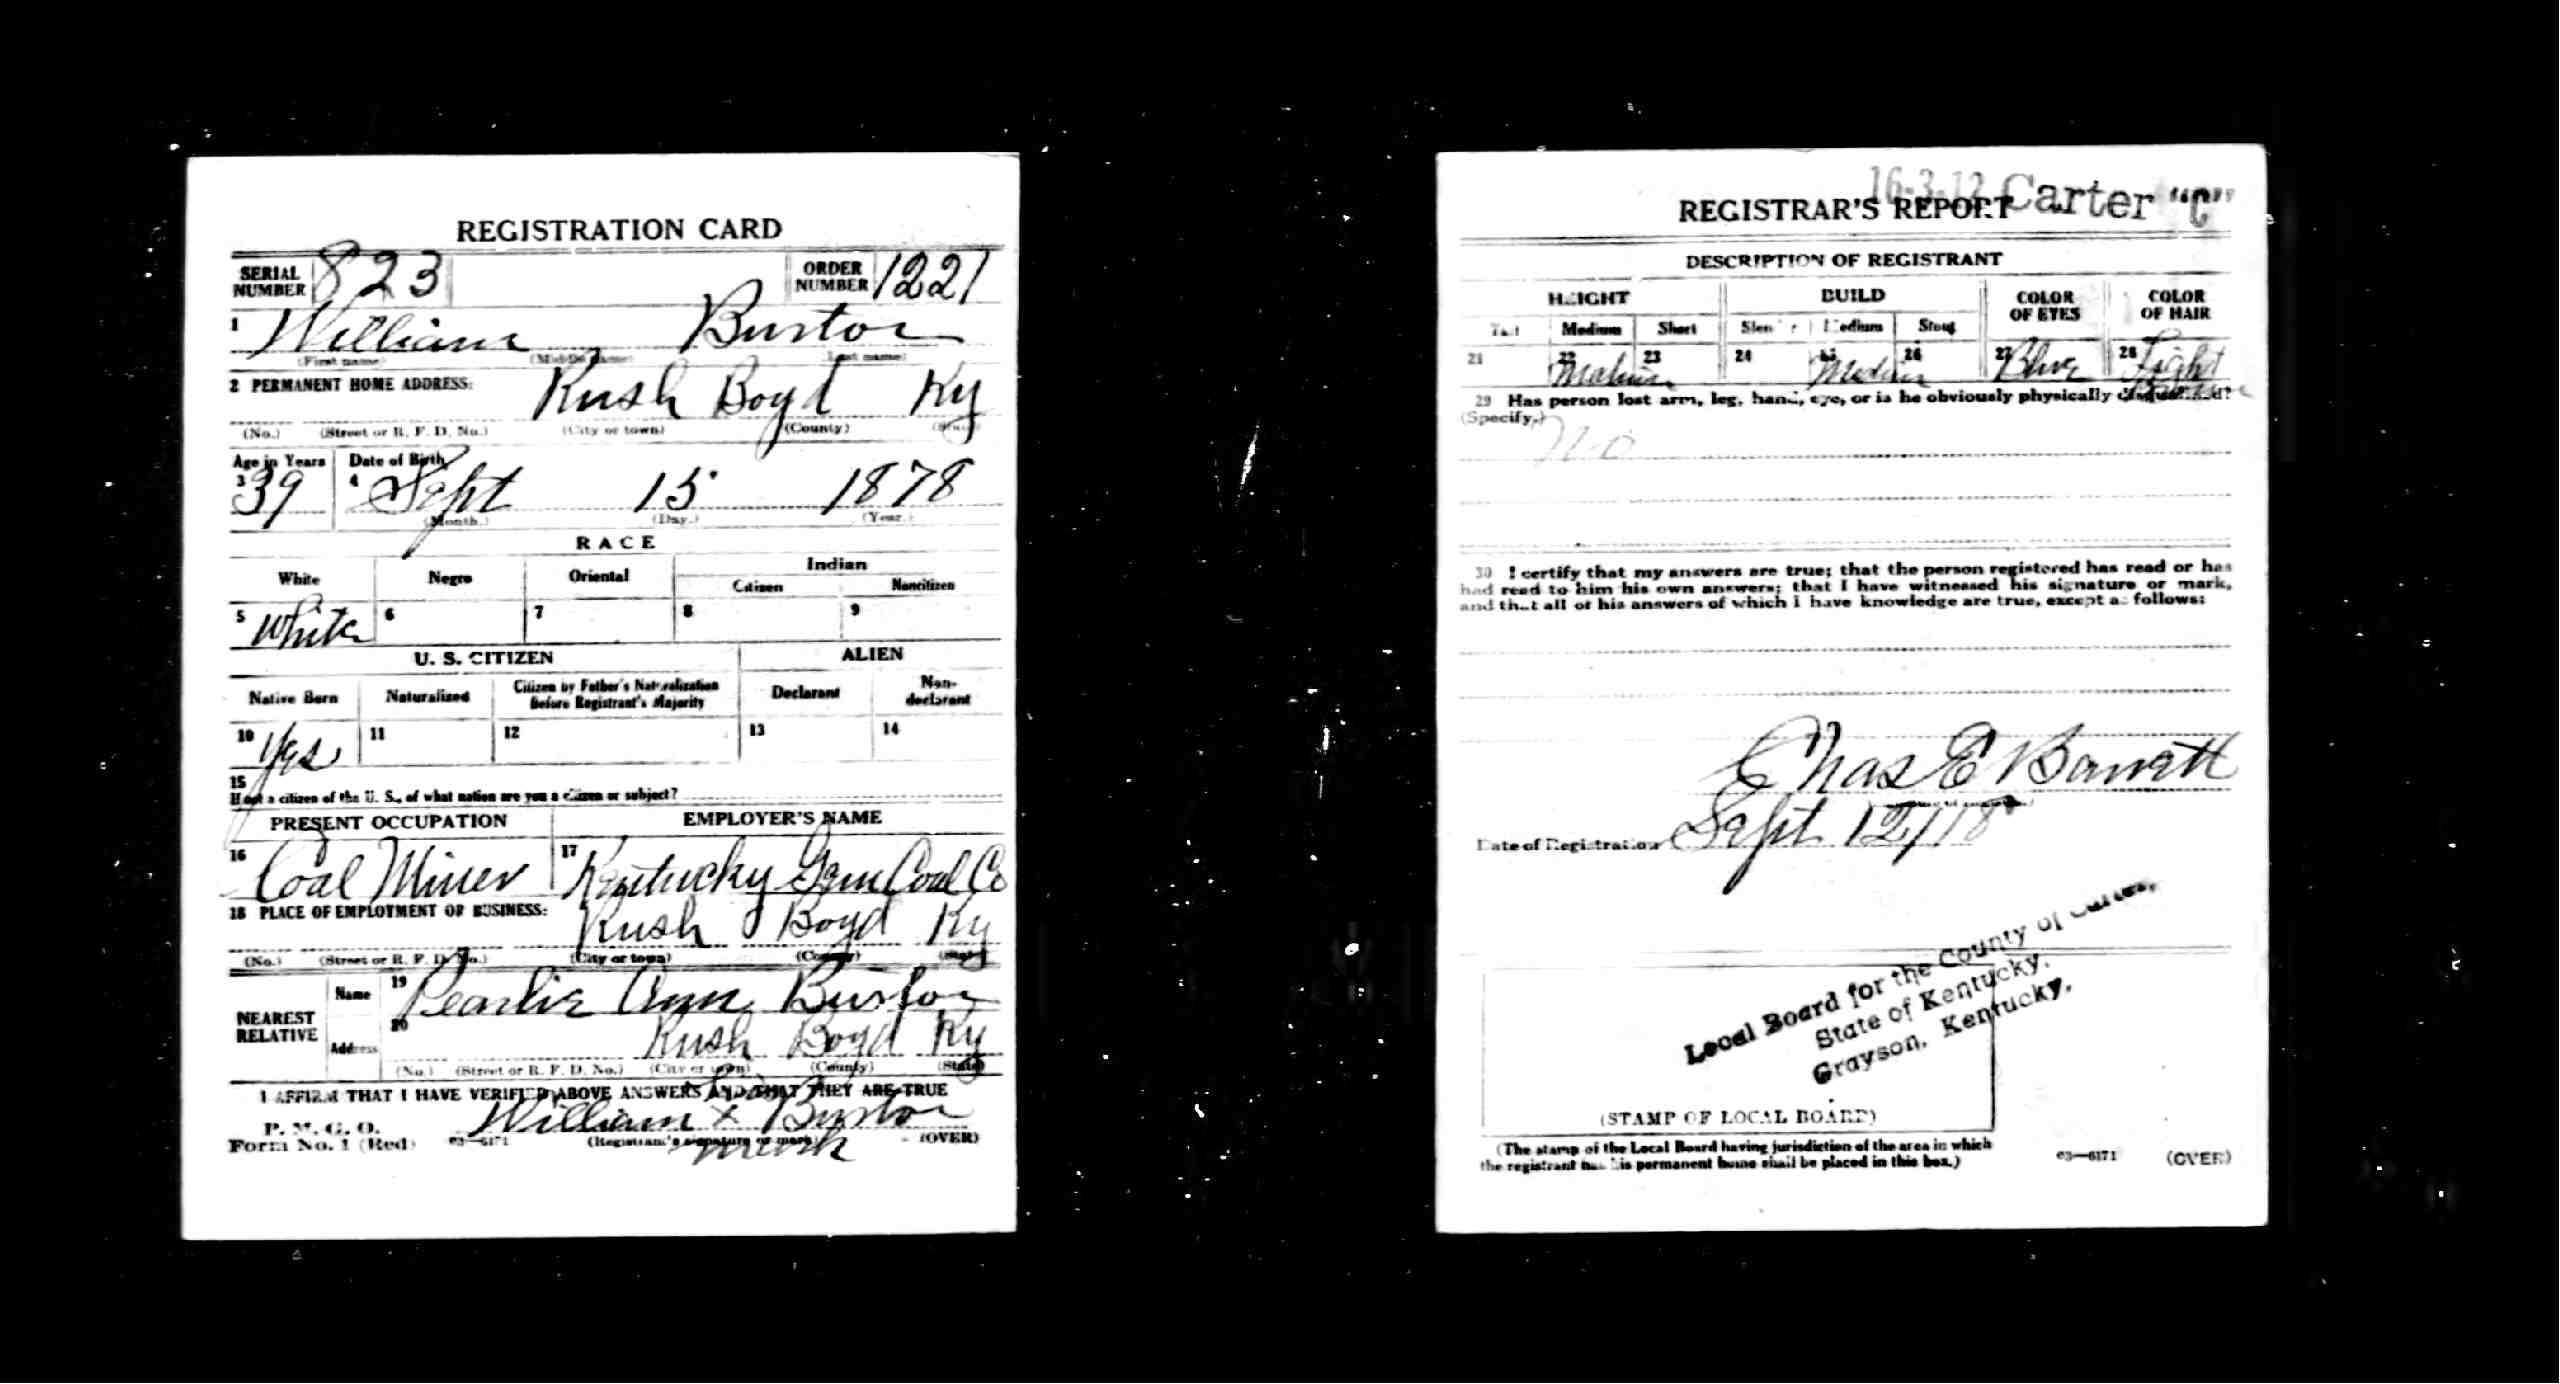 REGISTRATION CARD
SERIAL NUMBER 823 ORDER NUMBER 1221
1 William Burton
(First name) (Middle name) (Last name)
2 PERMANENT HOME ADDRESS: Rush Boyd Ky
(No.) (Street or R. F. D. No.) (City or town) (County) (State)
Age in Years Date of Birth
3 39 4 Sept 15 1878
(Month.) (Day.) (Year.)
RACE
White Negro Oriental Indian
Citizen Noncitizen
5 White 6 7 8 9
U. S. CITIZEN ALIEN
Native Born Naturalized Citizen by Father's Naturalization Before Registrant's Majority Declarant Non-declarant
10 Yes 11 12 13 14
15
If not a citizen of the U. S., of what nation are you a citizen or subject?
PRESENT OCCUPATION EMPLOYER'S NAME
16 Coal Miner 17 Kentucky Gem Coal Co
18 PLACE OF EMPLOYMENT OR BUSINESS: Rush Boyd Ky
(No.) (Street or R. F. D. No.) (City or town) (County) (State)
NEAREST RELATIVE Name 19 Pearlie Ann Burton
Address 20 Rush Boyd Ky
(No.) (Street or R. F. D. No.) (City or town) (County) (State)
I AFFIRM THAT I HAVE VERIFIED ABOVE ANSWERS AND THAT THEY ARE TRUE
his
William x Burton
mark
P. M. G. O.
Form No. 1 (Red) 03—6171 (Registrant's signature or mark) (OVER)
16-3-12 Carter "C"
REGISTRAR'S REPORT
DESCRIPTION OF REGISTRANT
HEIGHT BUILD COLOR OF EYES COLOR OF HAIR
Tall Medium Short Slender Medium Stout
21 22 Medium 23 24 25 Medium 26 27 Blue 28 Light
29 Has person lost arm, leg, hand, eye, or is he obviously physically disqualified?
(Specify.)
No
30 I certify that my answers are true; that the person registered has read or has
had read to him his own answers; that I have witnessed his signature or mark,
and that all of his answers of which I have knowledge are true, except as follows:
Chas E Barrett
Date of Registration Sept 12/18
Local Board for the County of Carter,
State of Kentucky,
Grayson, Kentucky,
(STAMP OF LOCAL BOARD)
(The stamp of the Local Board having jurisdiction of the area in which
the registrant has his permanent home shall be placed in this box.)
03—6171 (OVER)